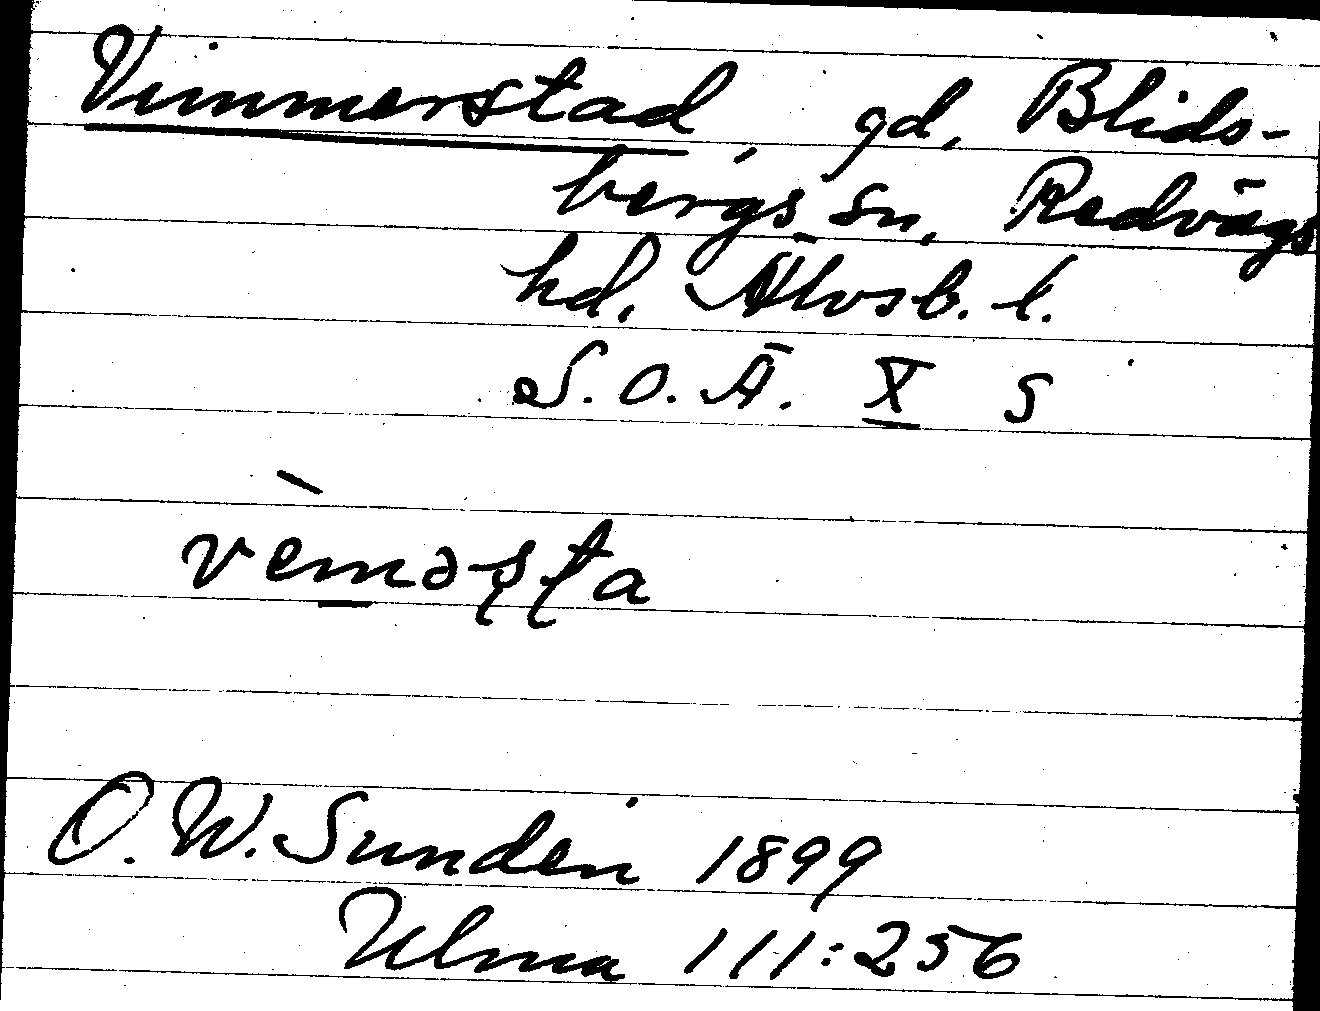 Vimmerstad, gd, Blids-
bergs sn, Redvägs
hd. Älvsb. l.
S.O.Ä. X S
vèməsta
O.W. Sundén 1899
Ulma 111:256